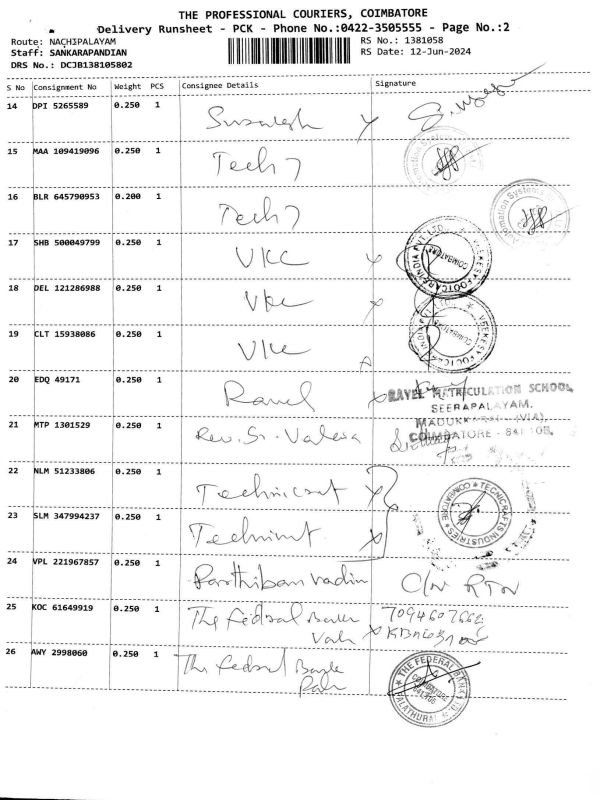 THE PROFESSIONAL COURIERS, COIMBATORE
Delivery Runsheet - PCK - Phone No.:0422-3505555 - Page No.:2
Route: NACHIPALAYAM RS No.: 1381058
Staff: SANKARAPANDIAN RS Date: 12-Jun-2024
DRS No.: DCJB138105802
S No Consignment No Weight PCS Consignee Details Signature
14 DPI 5265589 0.250 1
15 MAA 109419096 0.250 1 Tech 7
16 BLR 645790953 0.200 1 Tech 7
17 SHB 500049799 0.250 1 VKC
18 DEL 121286988 0.250 1 VKC
19 CLT 15938086 0.250 1 VKC
20 EDQ 49171 0.250 1 Ravel
RAVEL MATRICULATION SCHOOL
SEERAPALAYAM,
21 MTP 1301529 0.250 1 Rev. Sr. Valera
MADUKKARAI (VIA),
COIMBATORE
22 NLM 51233806 0.250 1
TECNICRAFTS INDUSTRIES COIMBATORE
23 SLM 347994237 0.250 1
24 VPL 221967857 0.250 1 Parthiban vadin
25 KOC 61649919 0.250 1 The Federal Bank
26 AWY 2998060 0.250 1 The Federal Bank
THE FEDERAL BANK
COIMBATORE
PALATHURAI